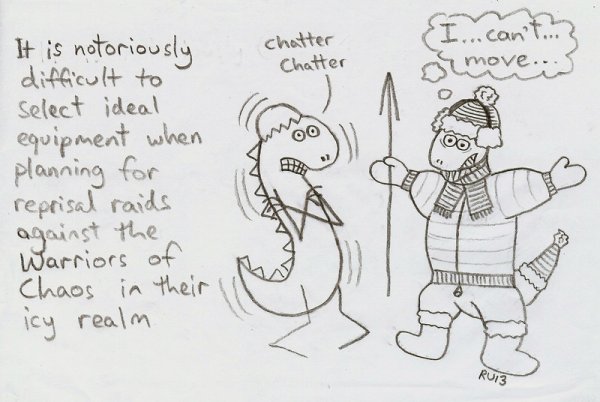 It is notoriously
difficult to
select ideal
equipment when
planning for
reprisal raids
against the
Warriors of
Chaos in their
icy realm
chatter
Chatter
I...can't...
move...
RU13